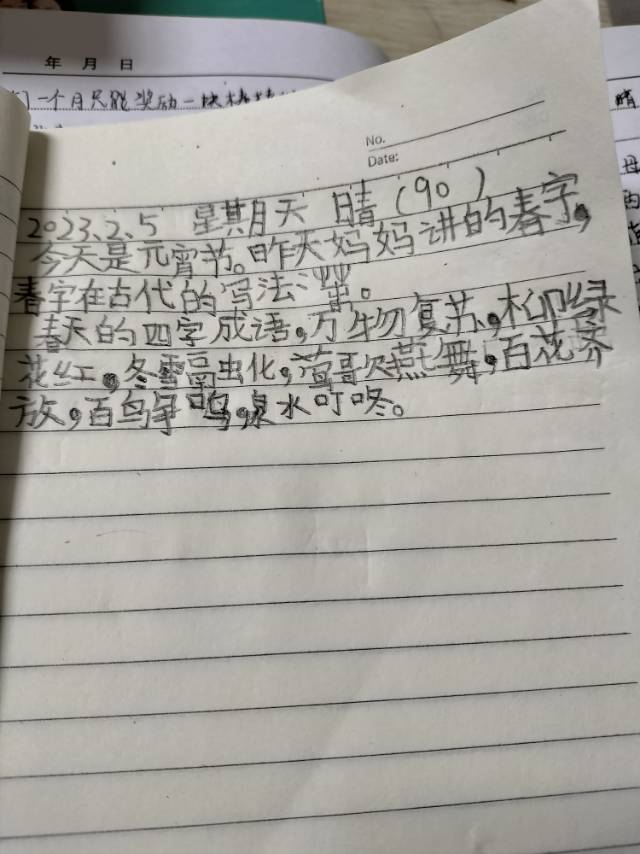 年 月 日
一个月只能奖励一块
晴
No.
Date:
2023.2.5 星期天 晴（90）
今天是元宵节。昨天妈妈讲的春字，
春字在古代的写法：。
春天的四字成语，万物复苏，柳绿
花红，冬雪融化，莺歌燕舞，百花齐
放，百鸟争鸣，泉水叮咚。